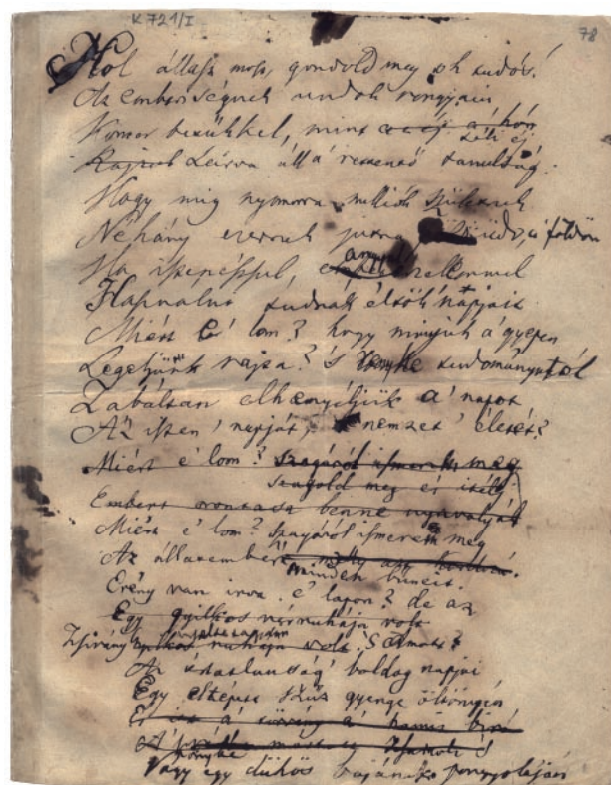 K 721/I
78
Hol állasz most, gondold meg oh tudós!
Az emberiségnek undok rongyain
Komor betűkkel, mint a' hón
téli éj
Rajzol Leirva áll á rettentő tanulság.
Hogy mig nyomorra milliók születnek
Néhány ezernek jutna üdv, á földön
angyal
Ha istenésszel, érzelemmel
Hasznalni tudnák éltök napjait
Miért é' lom? hogy mint juh á gyepen
Legeljünk rajta? 's tudománytól
Zabáltan elhenyéljük á' napot
Az isten' napját, nemzet' életét?
Miért é' lom? szagáról ismerek meg
szagold meg és itélj
Embert benne nyavalyát
Miért é' lom? szagáról ismerem meg
Az állatember
minden bűneit.
Erény van irva é' lapon? de az
Egy gyilkos vérruháju volt
Zsivány ruhája volt. 'S amott?
Az ártatlanság' boldog napjai
Egy eltépett szűz gyenge öltönyén
Ez itt á törvény á' hamis biró
Vagy egy dühös bujának pongyoláján